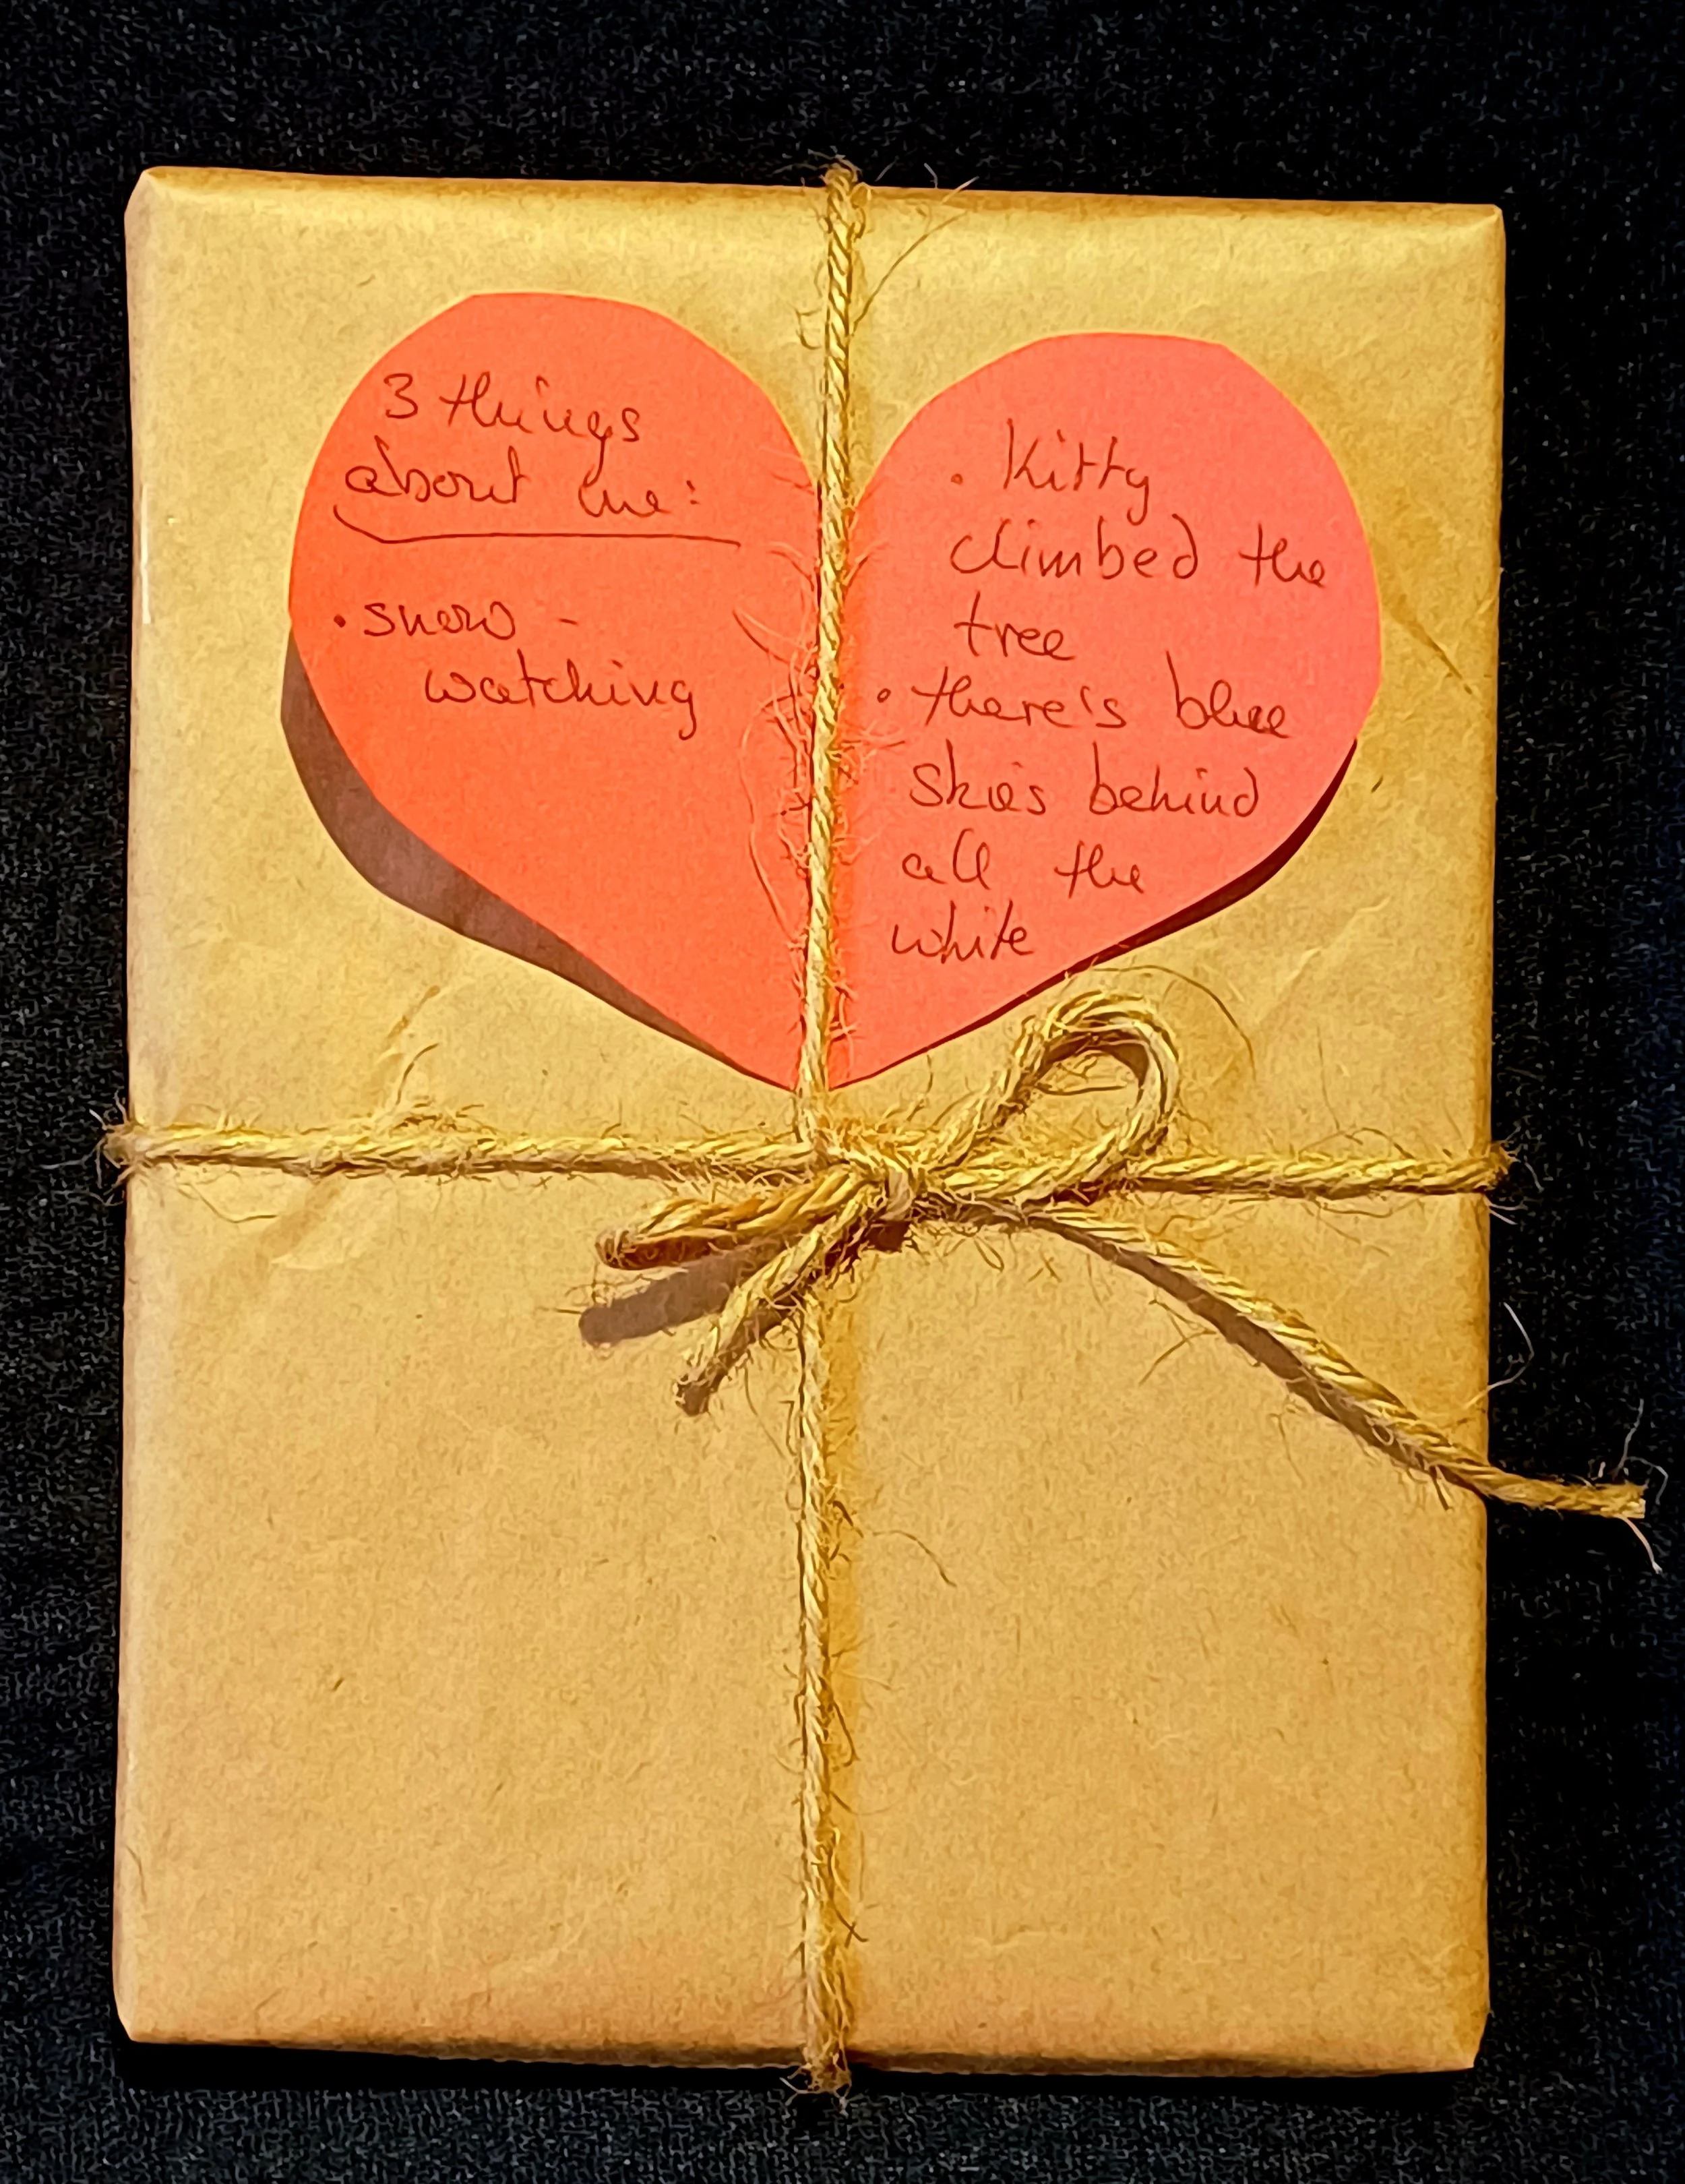 3 things
about me:
• snow -
watching
• Kitty
climbed the
tree
• there's blue
skies behind
all the
white